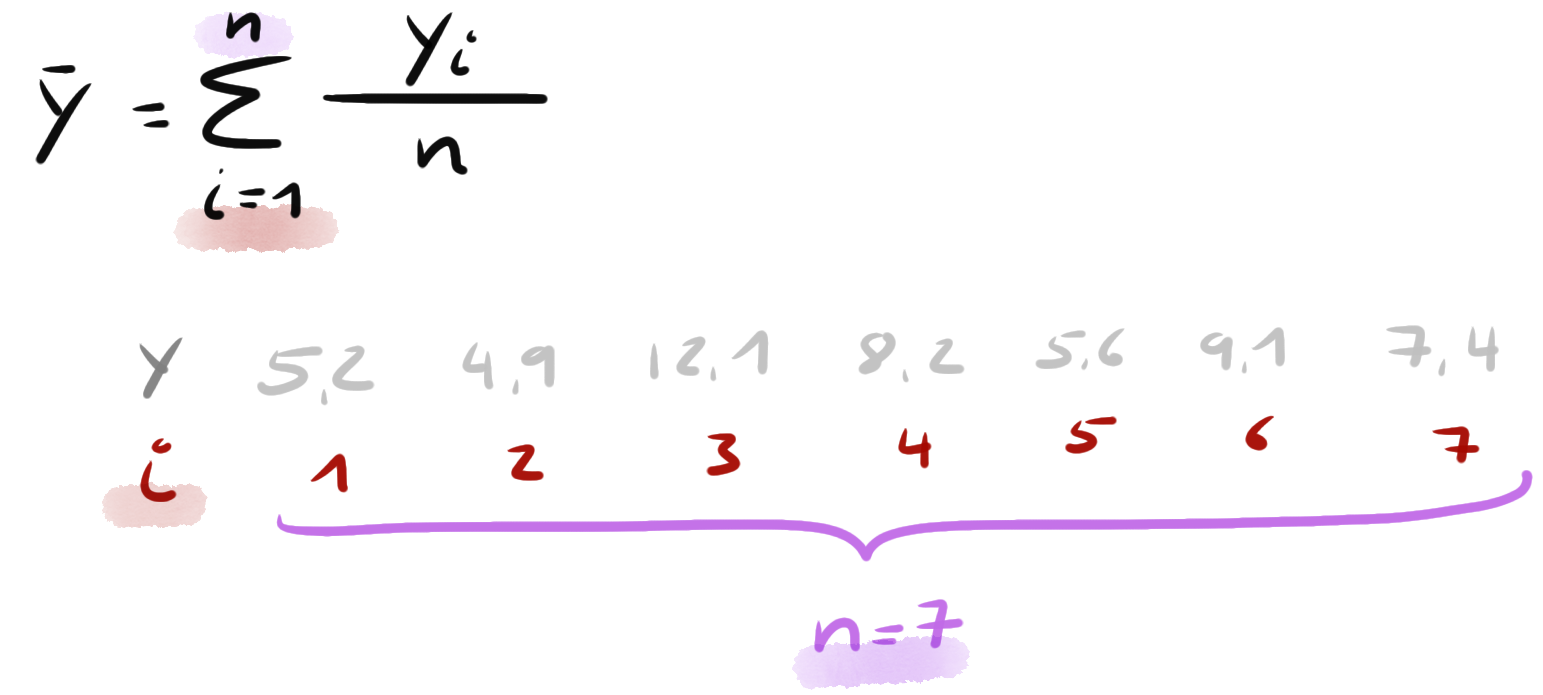 ȳ = Σ_{i=1}^{n} y_i / n
y 5,2 4,9 12,1 8,2 5,6 9,1 7,4
i 1 2 3 4 5 6 7
n=7